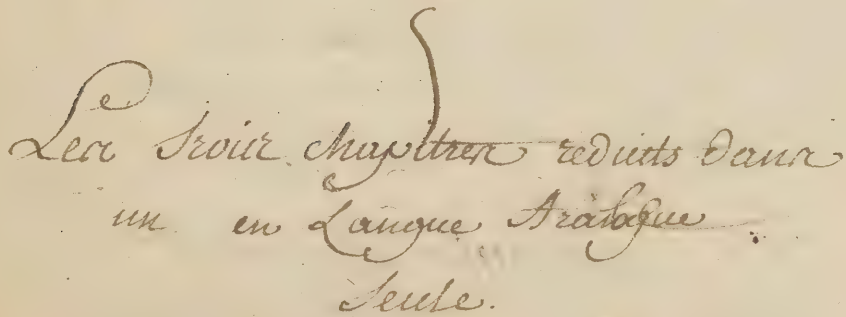 Les trois chapitres reduits dans
un en Langue
Seule.